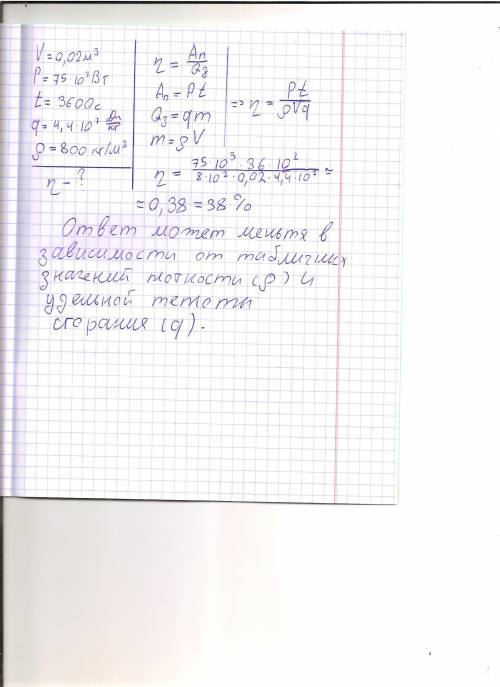 V = 0,02 м³
P = 75·10³ Вт
t = 3600 с
q = 4,4·10⁷ Дж/кг
ρ = 800 кг/м³
η - ?
η = Aп/Qз
Aп = Pt
Qз = qm
m = ρV
=> η = Pt/ρVq
η = 75·10³·36·10²/8·10²·0,02·4,4·10⁷ ≈
≈ 0,38 = 38%
Ответ может меньтя в
зависимости от табличных
значений плотности (ρ) и
удельной теплоты
сгорания (q).